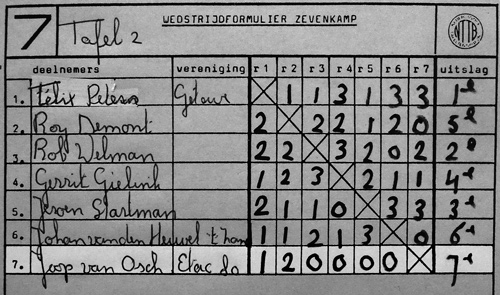 7 Tafel 2 WEDSTRIJDFORMULIER ZEVENKAMP NTTB
deelnemers vereniging r1 r2 r3 r4 r5 r6 r7 uitslag
1. Félix Peters 1 1 3 1 3 3 1e
2. Roy Demont 2 2 2 1 2 0 5e
3. Rob Welman 2 2 3 2 0 2 2e
4. Gerrit Gielink 1 2 3 2 1 1 4e
5. Jeroen Slartman 2 1 1 0 3 3 3e
6. Johan van den Heuvel 't 1 1 2 1 3 0 6e
7. Joop van Osch Etac 1 2 0 0 0 0 7e